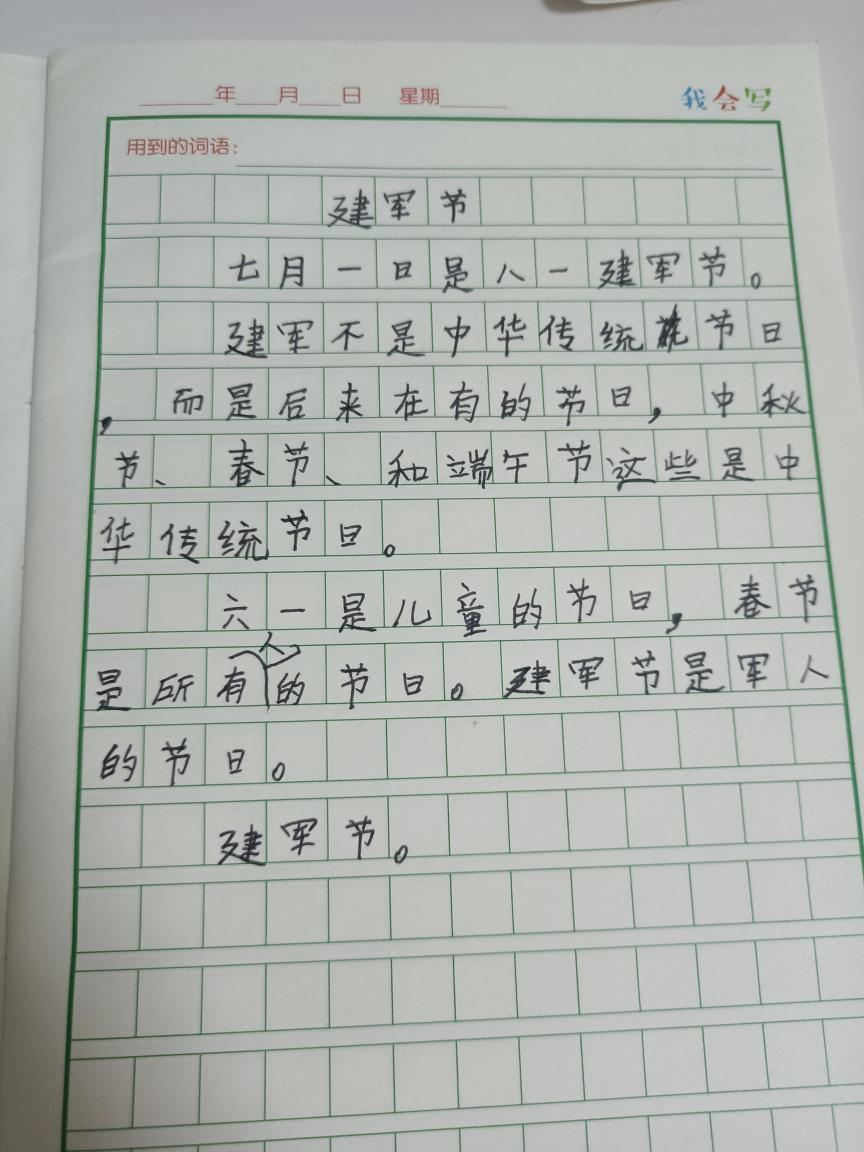 年 月 日 星期 我会写
用到的词语：
建军节
七月一日是八一建军节。
建军不是中华传统节日
，而是后来在有的节日，中秋
节、春节、和端午节这些是中
华传统节日。
六一是儿童的节日，春节
是所有人的节日。建军节是军人
的节日。
建军节。